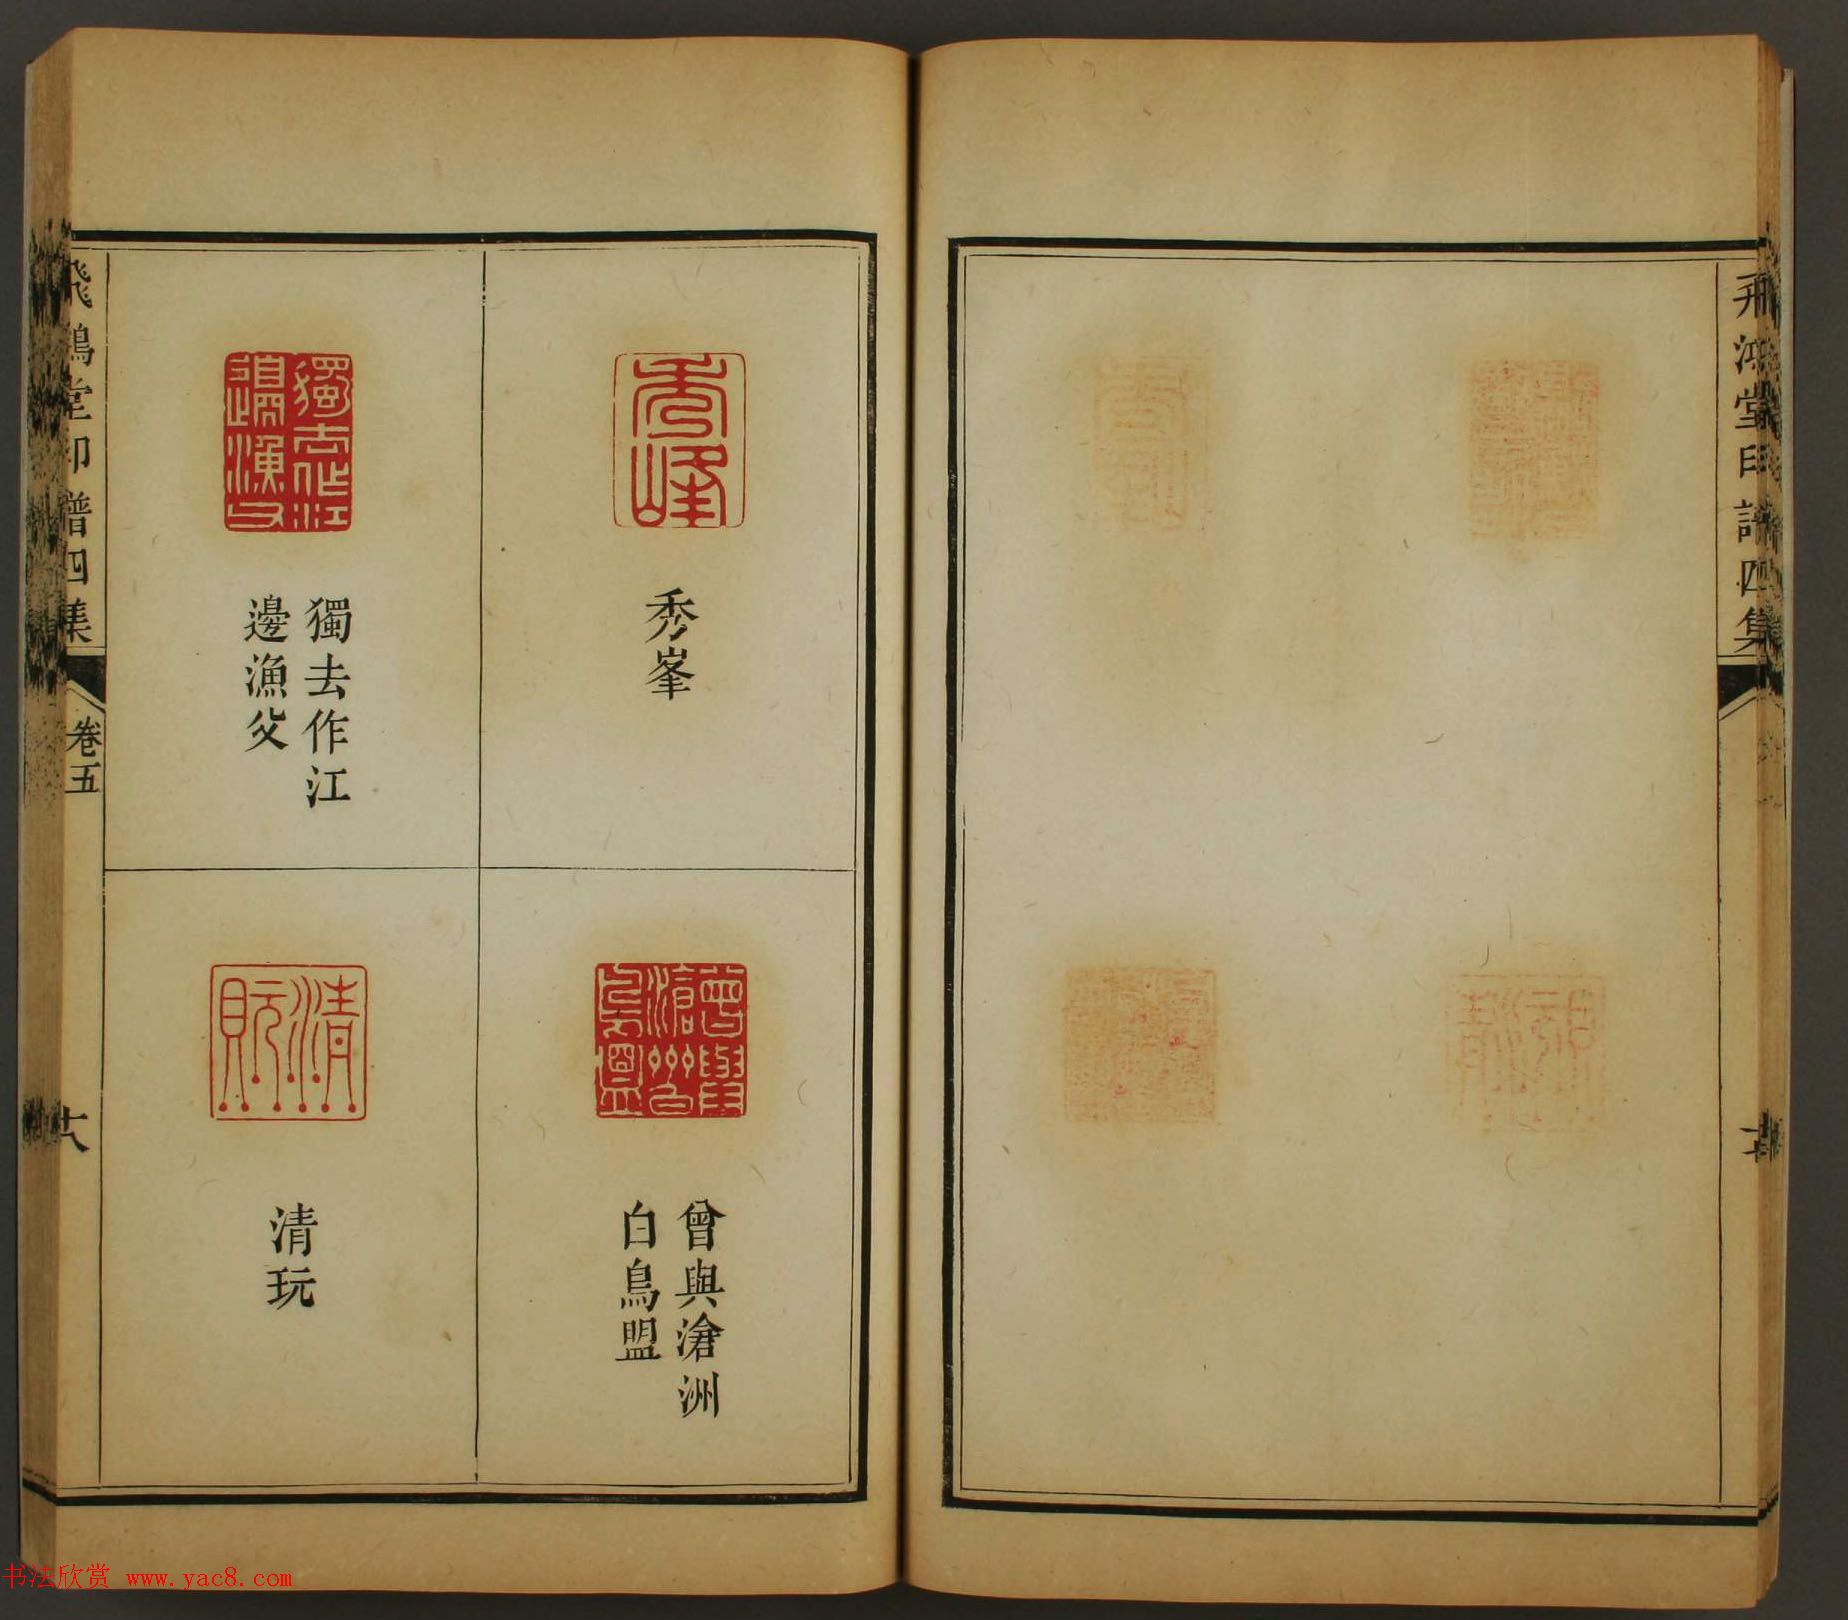 飛鴻堂印譜四集
秀峯
獨去作江
邊漁父
曾與滄洲
白鳥盟
清玩
飛鴻堂印譜四集
卷五
十八
书法欣赏 www.yac8.com